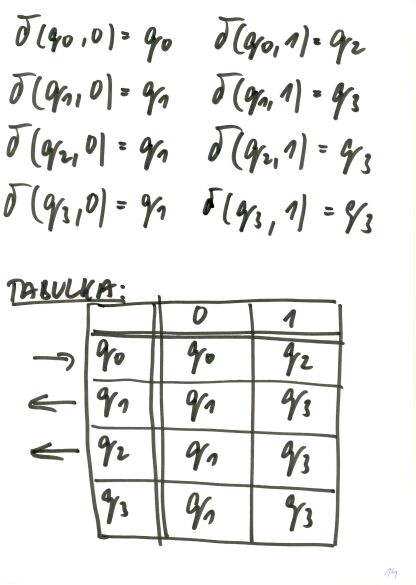 δ(q0,0) = q0 δ(q0,1) = q2
δ(q1,0) = q1 δ(q1,1) = q3
δ(q2,0) = q1 δ(q2,1) = q3
δ(q3,0) = q1 δ(q3,1) = q3
TABULKA:
0 1
→ q0 q0 q2
← q1 q1 q3
← q2 q1 q3
q3 q1 q3
14